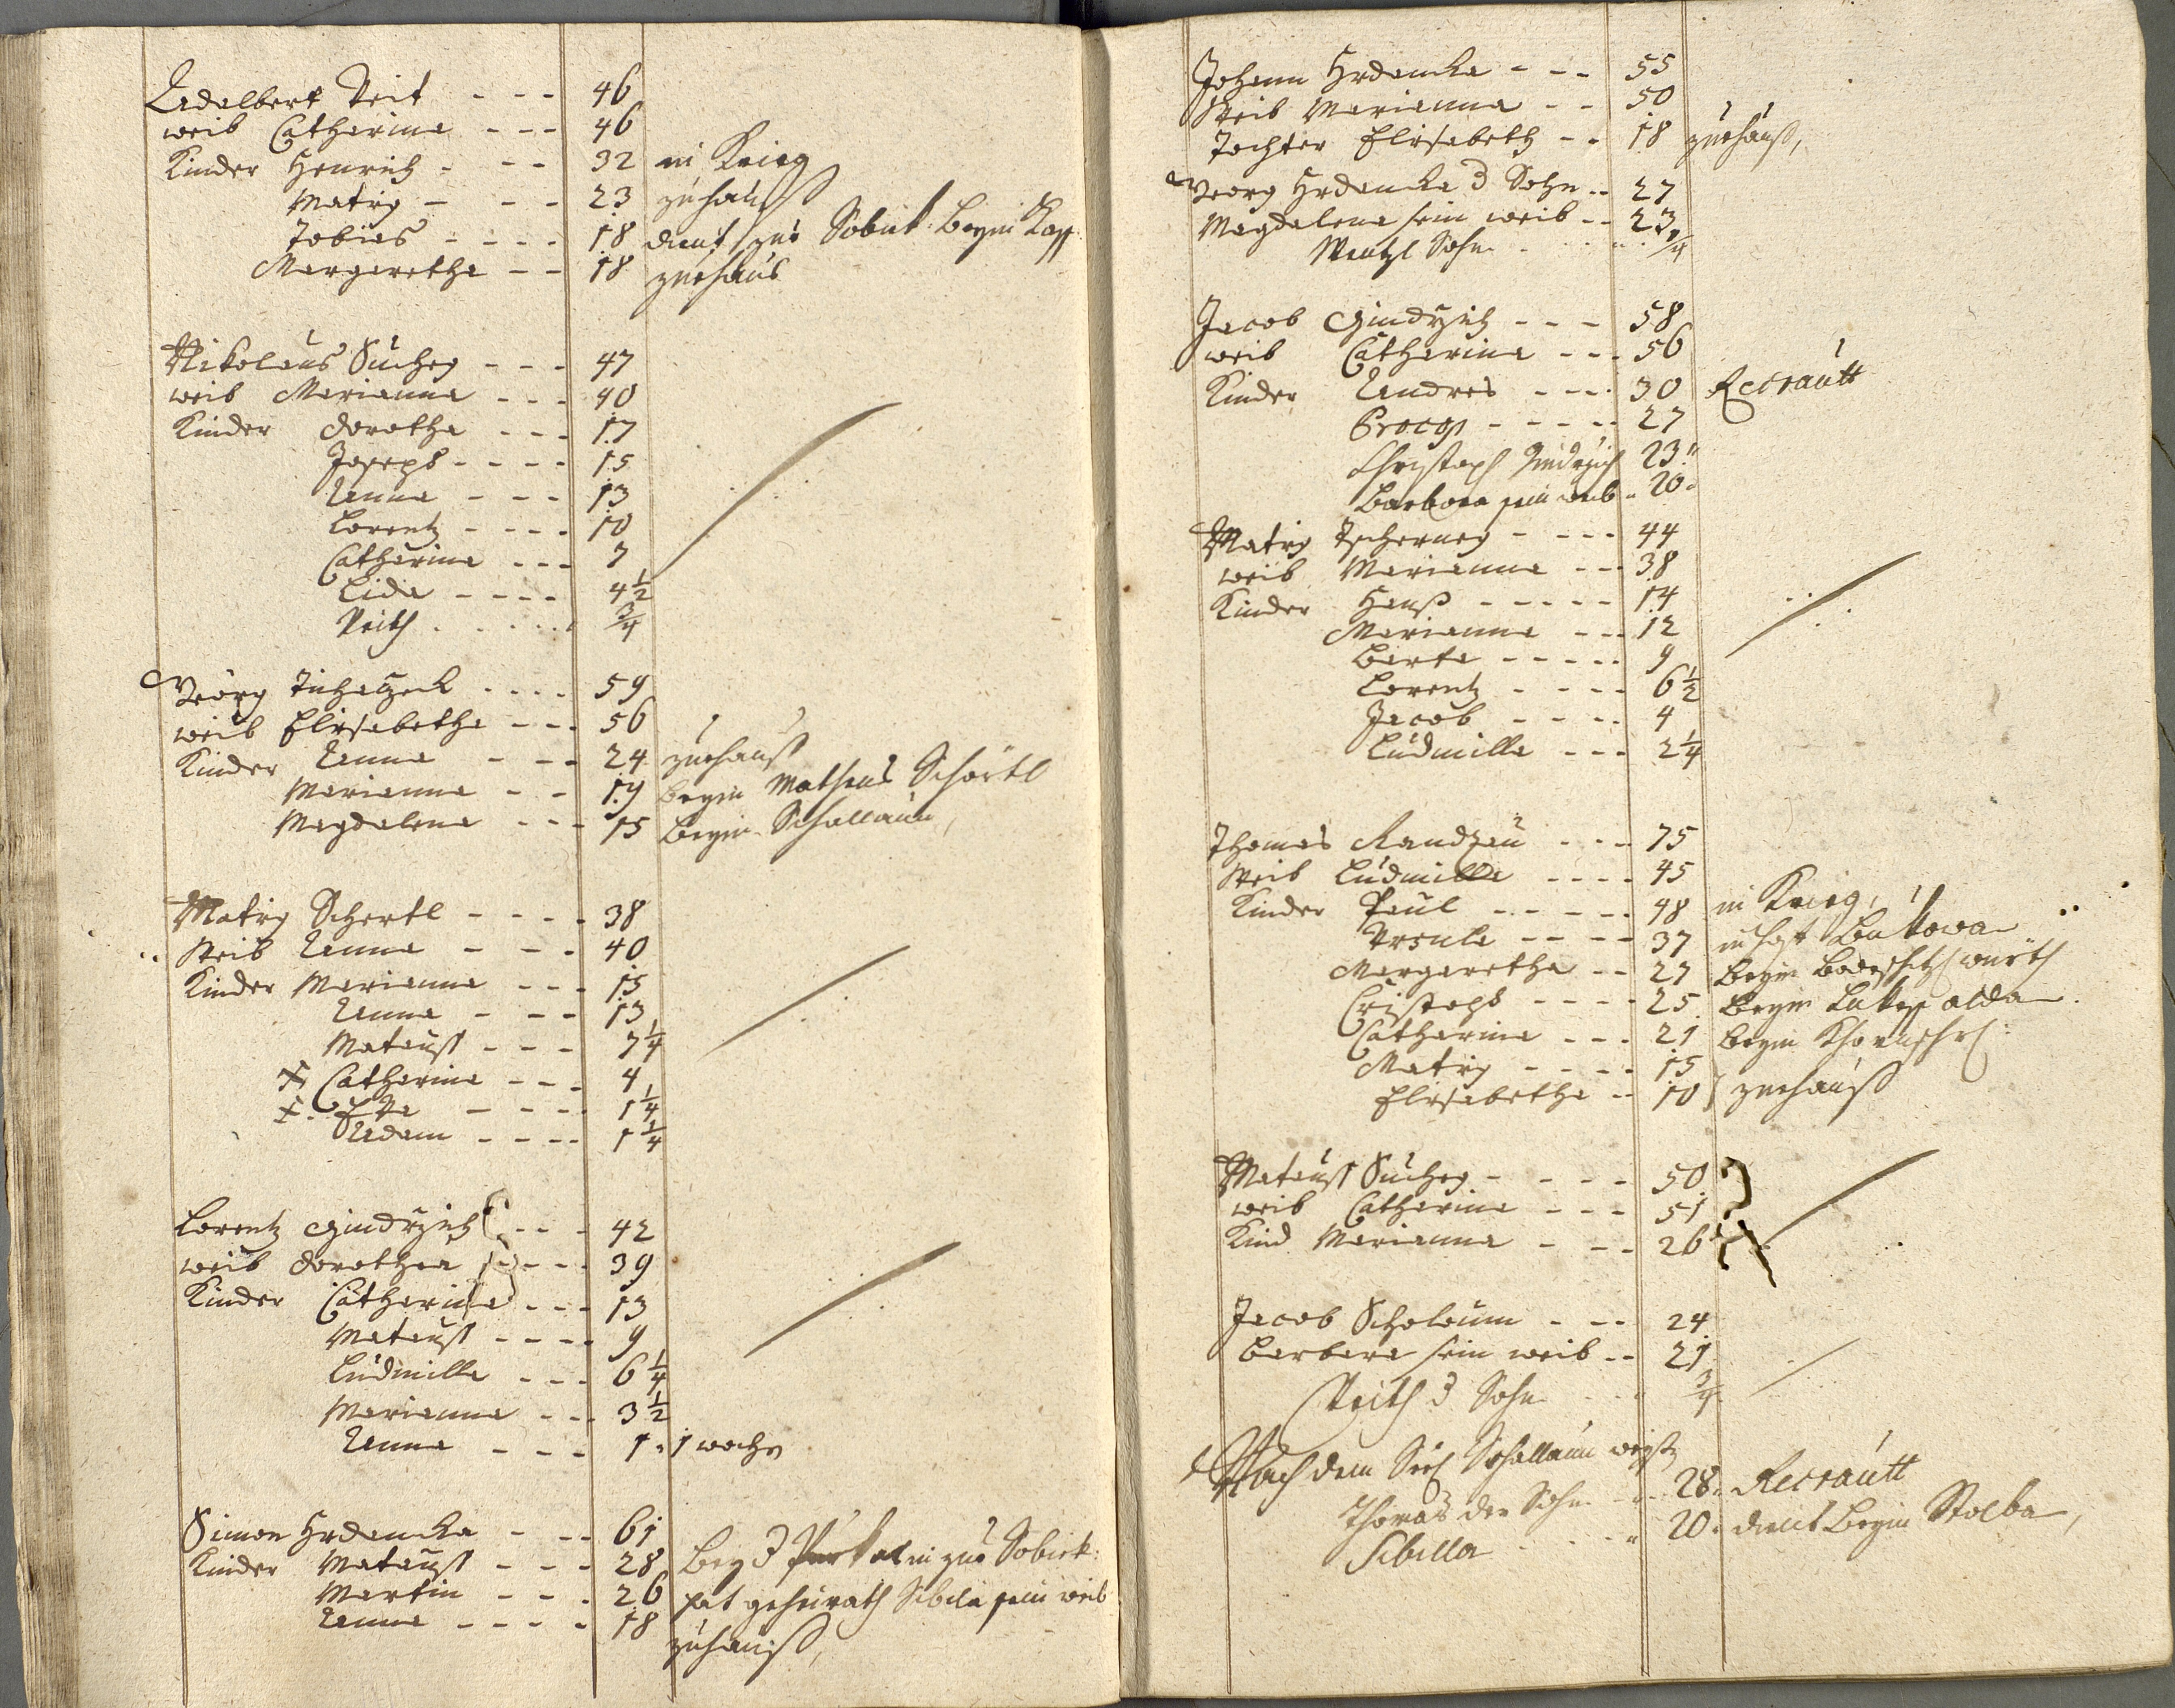 Adalbert Veit - - - 46
weib Catharina - - - 46
Kinder Henrich - - - 32 in Krieg
Matig - - - 23 zuhauß
Tobias - - - - 18 dient zue Sobiet: beym
Margaretha - - 18 zuehaus
Nikolaus Suchey - - - 47
weib Marianna - - - 40
Kinder Dorotha - - - 17
Joseph - - - - 15
Anna - - - 13
Lorentz - - - - 10
Catharina - - - 7
Lida - - - - 4 1/2
Veith . . . . . 3/4
Georg . . . . 59
weib Elisabetha - - - 56
Kinder Anna - - - 24 zuehauß
Marianna - - 19 beym Matheus Schörtl
Magdalena - - - 15 beym Schallaun,
Matig Schertl - - - - 38
Weib Anna - - - 40
Kinder Marianna - - - 15
Anna - - - 13
Matauß - - - 7 1/4
X Catharina - - - 4
X. Eva - - - - 1 1/4
Adam - - - - 1 1/4
Lorentz Gindrzich - - - 42
weib Dorothea - - - 39
Kinder Catharina - - - 13
Matauß - - - - 9
Ludmilla - - - 6 1/4
Marianna - - 3 1/2
Anna - - - 1. 1 woche
Simon Hrdanka - - - 61
Kinder Matauß - - - 28 bey zue Sobiek:
Martin - - - 26 hat geheirath Sibila sein weib
Anna - - - - 18 zuhauß,
Johann Hrdanka - - - 55
Weib Marianna - - 50
Tochter Elisabeth - - 18 zuehauß,
Georg Hrdanka d Sohn - - 27
Magdalena sein weib - - 23
Wentzl Sohn . . . . . 3/4
Jacob Gindrzich - - - 58
weib Catharina - - - 56
Kinder Andres - - - 30 Recrautt
Procop - - - - - 27
Christoph Jindrzich 23 "
Barbora sein weib " 20 "
Matig Tscherney - - - - 44
weib Marianna - - - 38
Kinder Hanß - - - - - 14
Marianna - - - 12
Barta - - - - - 9
Lorentz - - - - 6 1/2
Jacob - - - - 4
Ludmilla - - - 2 1/4
Thomas Randzau - - - 75
Weib Ludmilla - - - - 45
Kinder Paul - - - - - 48 in Krieg,
Ursula - - - - 37
Margaretha - - 27 beym
Cristoph - - - - 25 beym
Catharina - - - 21 beym
Matig - - - - 15
Elisabetha - - 10 } zuehauß
Matauß Suchey - - - - 50
weib Catharina - - - 51
Kind Marianna - - - 26
Jacob Schalaun - - - 24
Barbara sein weib - - 21
Veith d Sohn . . . 3/4
Nach dem Schallaun
Thomas der Sohn - " 28. Recrautt
Sibilla . . . " 20. dient beym Stolba,